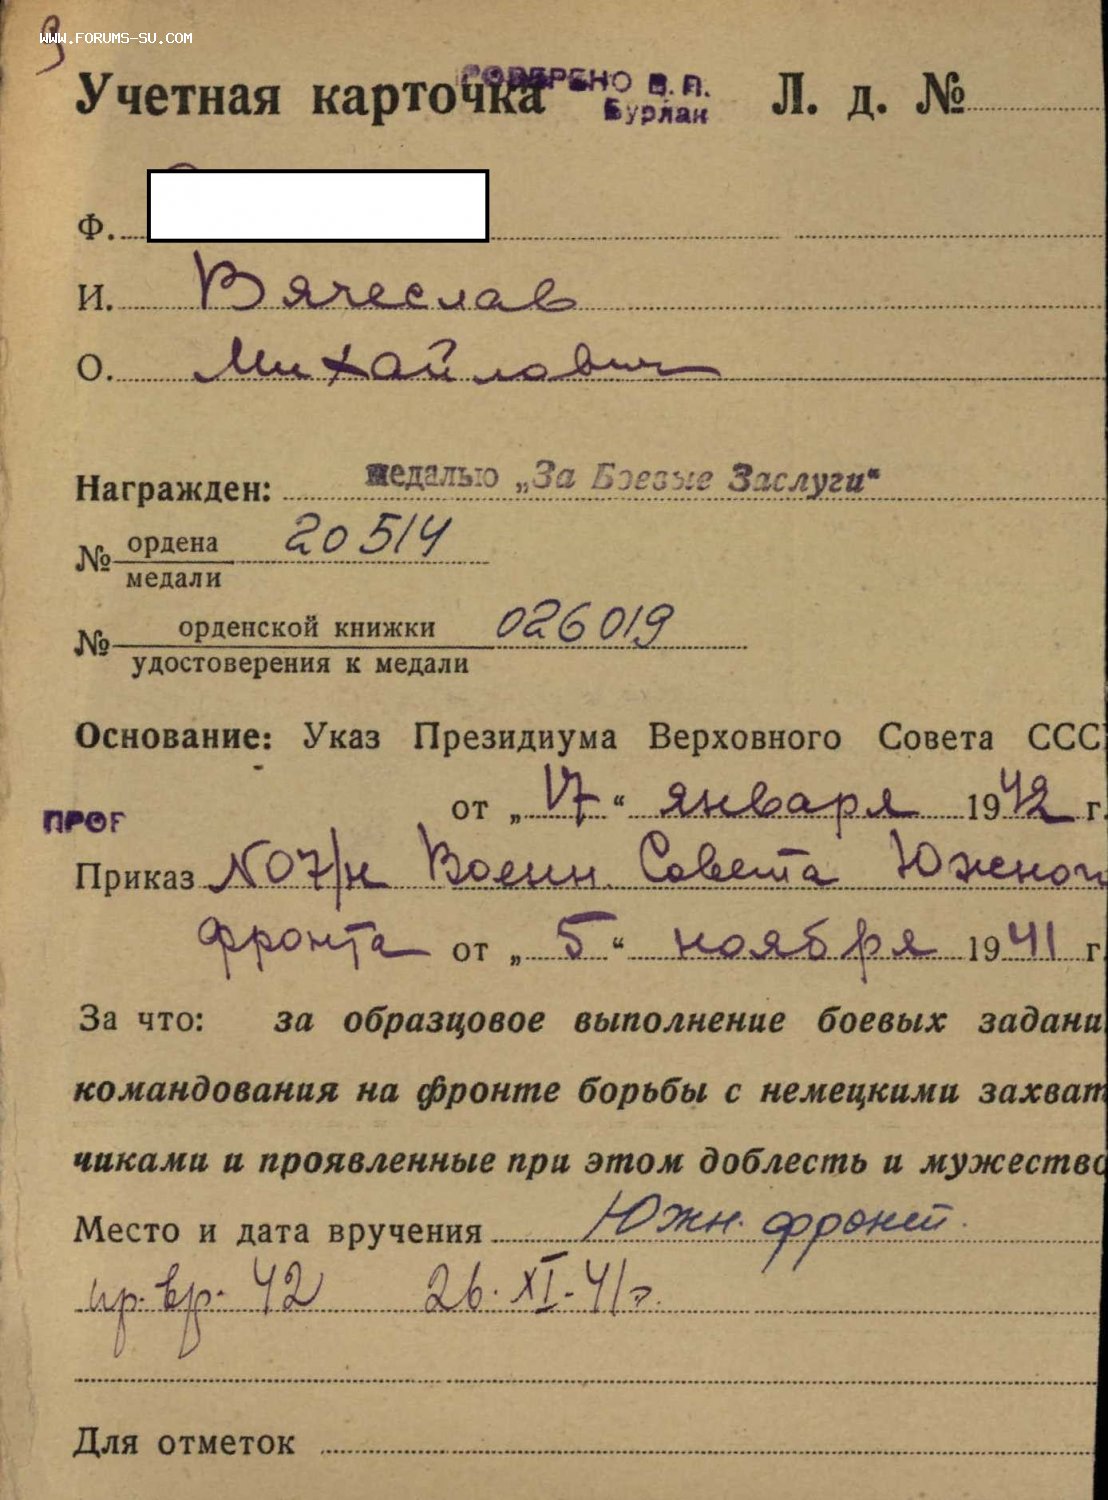 WWW.FORUMS-SU.COM
Учетная карточка Л. д. №
В. П.
Бурлак
Ф.
И. Вячеслав
О. Михайлович
Награжден: медалью „За Боевые Заслуги“
№ ордена 20514
медали
№ орденской книжки 026019
удостоверения к медали
Основание: Указ Президиума Верховного Совета ССС
от „17“ января 1942 г.
ПРОГ
Приказ №07/н Военн. Совета Южного
фронта от „5“ ноября 1941 г.
За что: за образцовое выполнение боевых задани
командования на фронте борьбы с немецкими захват
чиками и проявленные при этом доблесть и мужество
Место и дата вручения Южн. фронт.
пр. вр. 42 26.XI-41г.
Для отметок